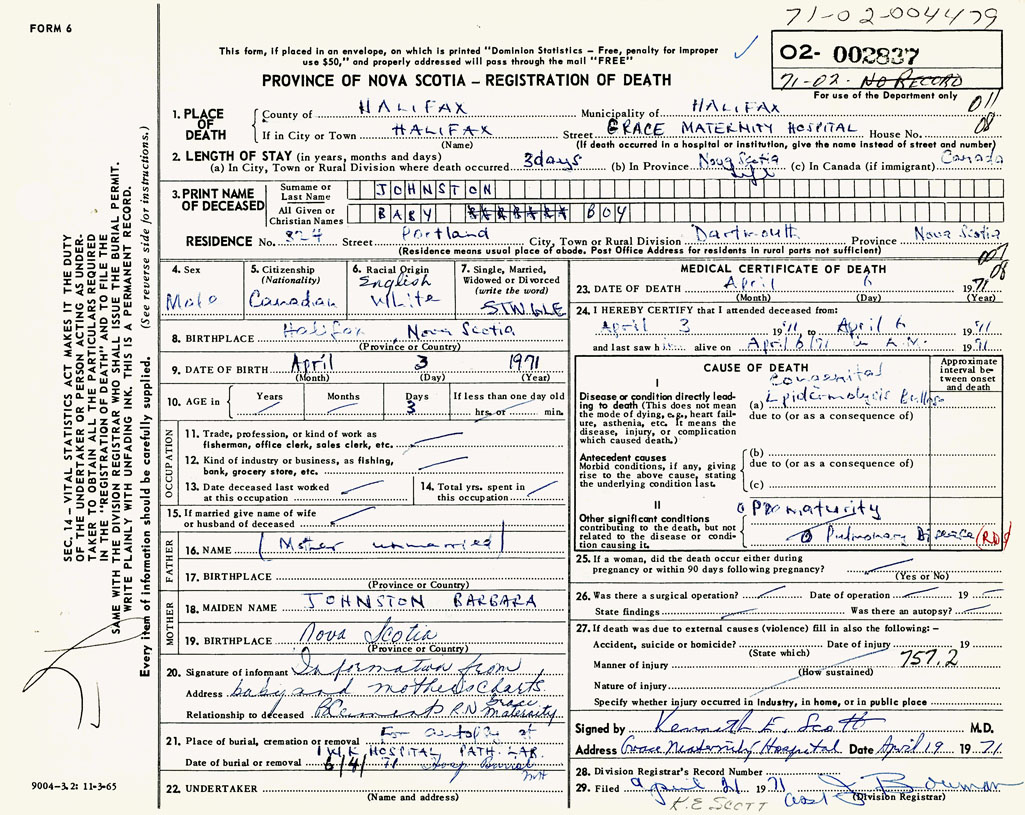 71-02-004479
FORM 6
This form, if placed in an envelope, on which is printed "Dominion Statistics – Free, penalty for improper
use $50," and properly addressed will pass through the mail "FREE"
PROVINCE OF NOVA SCOTIA – REGISTRATION OF DEATH
02- 002837
71-02- NO RECORD
For use of the Department only
011
08
1. PLACE OF DEATH
County of HALIFAX Municipality of HALIFAX
If in City or Town HALIFAX Street GRACE MATERNITY HOSPITAL House No.
(Name) (If death occurred in a hospital or institution, give the name instead of street and number)
2. LENGTH OF STAY (in years, months and days)
(a) In City, Town or Rural Division where death occurred 3 days (b) In Province Nova Scotia Life (c) In Canada (if immigrant) Canada
3. PRINT NAME OF DECEASED
Surname or Last Name JOHNSTON
All Given or Christian Names BABY BOY
RESIDENCE No. 324 Street Portland City, Town or Rural Division Dartmouth Province Nova Scotia
(Residence means usual place of abode. Post Office Address for residents in rural parts not sufficient)
007
08
4. Sex
Male
5. Citizenship
(Nationality)
Canadian
6. Racial Origin
English
White
7. Single, Married,
Widowed or Divorced
(write the word)
SINGLE
8. BIRTHPLACE Halifax, Nova Scotia
(Province or Country)
9. DATE OF BIRTH April 3 1971
(Month) (Day) (Year)
10. AGE in
Years Months Days If less than one day old
3 hrs. or min.
OCCUPATION
11. Trade, profession, or kind of work as
fisherman, office clerk, sales clerk, etc.
12. Kind of industry or business, as fishing,
bank, grocery store, etc.
13. Date deceased last worked
at this occupation
14. Total yrs. spent in
this occupation
15. If married give name of wife
or husband of deceased
FATHER
16. NAME (Mother unmarried)
17. BIRTHPLACE
(Province or Country)
MOTHER
18. MAIDEN NAME JOHNSTON BARBARA
19. BIRTHPLACE Nova Scotia
(Province or Country)
20. Signature of informant Information from
Address baby and mother's charts
Relationship to deceased R.N. Grace Maternity
21. Place of burial, cremation or removal For autopsy at
I.W.K HOSPITAL PATH. LAB.
Date of burial or removal 6/4/71 Hosp Burial
22. UNDERTAKER
(Name and address)
MEDICAL CERTIFICATE OF DEATH
23. DATE OF DEATH April 6 1971
(Month) (Day) (Year)
24. I HEREBY CERTIFY that I attended deceased from:
April 3 1971 to April 6 1971
and last saw him alive on April 6/71 A.M. 1971
CAUSE OF DEATH
Approximate
interval be-
tween onset
and death
I
Disease or condition directly lead-
ing to death (This does not mean
the mode of dying, e.g., heart fail-
ure, asthenia, etc. It means the
disease, injury, or complication
which caused death.)
Congenital
(a) Epidermolysis Bullosa
due to (or as a consequence of)
Antecedent causes
Morbid conditions, if any, giving
rise to the above cause, stating
the underlying condition last.
(b)
due to (or as a consequence of)
(c)
II
Other significant conditions
contributing to the death, but not
related to the disease or condi-
tion causing it.
Prematurity
Pulmonary Disease (RDS)
25. If a woman, did the death occur either during
pregnancy or within 90 days following pregnancy?
(Yes or No)
26. Was there a surgical operation? Date of operation 19
State findings Was there an autopsy?
27. If death was due to external causes (violence) fill in also the following: –
Accident, suicide or homicide? Date of injury 19
(State which)
Manner of injury 757.2
(How sustained)
Nature of injury
Specify whether injury occurred in Industry, in home, or in public place
Signed by Kenneth E. Scott M.D.
Address Grace Maternity Hospital Date April 19 1971
28. Division Registrar's Record Number
29. Filed April 21 1971 J Bowman
(Division Registrar)
K.E SCOTT
SEC. 14 – VITAL STATISTICS ACT MAKES IT THE DUTY
OF THE UNDERTAKER OR PERSON ACTING AS UNDER-
TAKER TO OBTAIN ALL THE PARTICULARS REQUIRED
IN THE "REGISTRATION OF DEATH" AND TO FILE THE
SAME WITH THE DIVISION REGISTRAR WHO SHALL ISSUE THE BURIAL PERMIT.
WRITE PLAINLY WITH UNFADING INK. THIS IS A PERMANENT RECORD.
Every item of information should be carefully supplied. (See reverse side for instructions.)
9004–3.2: 11-3-65